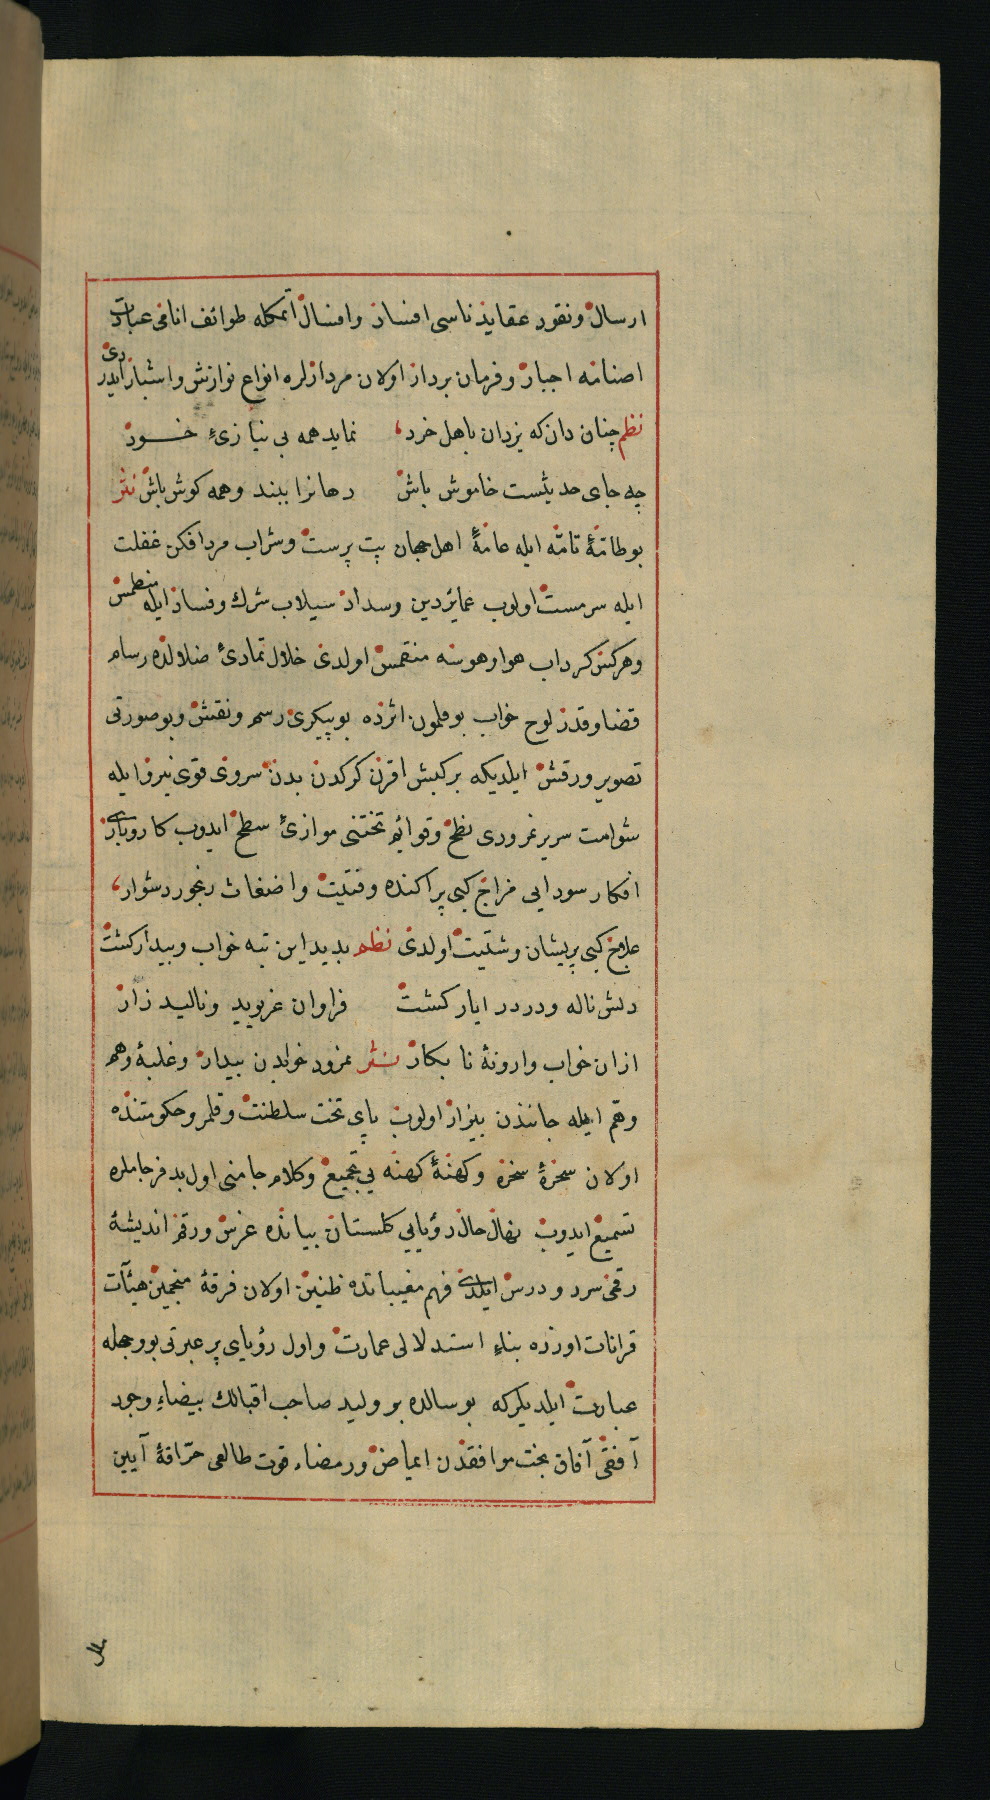 ارسال ونقود عقايد ناسى افساد وافسال اتمكله طوائف انافى عبادت
اصنامه اجبار وفرمان بردار اولان مردلره انواع نوازش واشبار ايدردى
نظم چنان دان كه يزدان باهل خرد نمايد همه بى نيازئ خود
چه جاى حديثست خاموش باش دهانرا ببند وهمه كوش باش نثر
بو طامّهٔ تامّه ايله عامهٔ اهل جهان بت پرست وشراب مردافكن غفلت
ايله سرمست اولوب عمايد دين وسداد سيلاب شرك وفساد ايله منطمس
وهركس كرداب هوا وهوسه منقمس اولدى خلال تمادئ ضلالده رسام
قضا وقدر لوح خواب بوقلمون اثرده بو پيكرى رسم ونقش وبو صورتى
تصوير ورقش ايلديكه بر كبش اقرن كركدن بدن سروى قوى نيرو ايله
شوامت سرير نمرودى نطح وقوائم تختنى موازئ سطح ايدوب كار وبارى
افكار سودايى مزاج كبى پراكنده وفتيت واضغاث رنجور دشوار
علاج كبى پريشان وشتيت اولدى نظم بديد اين تبه خواب وبيدار كشت
دلش ناله ودرد را يار كشت فراوان غريويد وناليد زار
ازان خواب وارونهٔ نا بكار نثر نمرود خوابدن بيدار وغلبهٔ وهم
وهم ايله جانندن بيزار اولوب پاى تخت سلطنت وقلمرو حكومتنده
اولان سخرهٔ سخره وكهنهٔ كهنه يى تجميع وكلام جامنى اول بد فرجاملره
تسميع ايدوب نهال حال رؤيايى كلستان بيانده غرس ورقم انديشهٔ
رقمى سرد ودرس ايلدى فهم مغيباتده ظنين اولان فرقهٔ منجمين هيآت
قرانات اوزره بناء استدلالى عمارت واول رؤياى پر عبرتى بو وجهله
عبارت ايلديلركه بو سالده بر وليد صاحب اقبالك بيضاء وجود
آفقى آفاق بخت موافقدن ايماض ورمضاء قوت طالعى حرّاقهٔ آيين